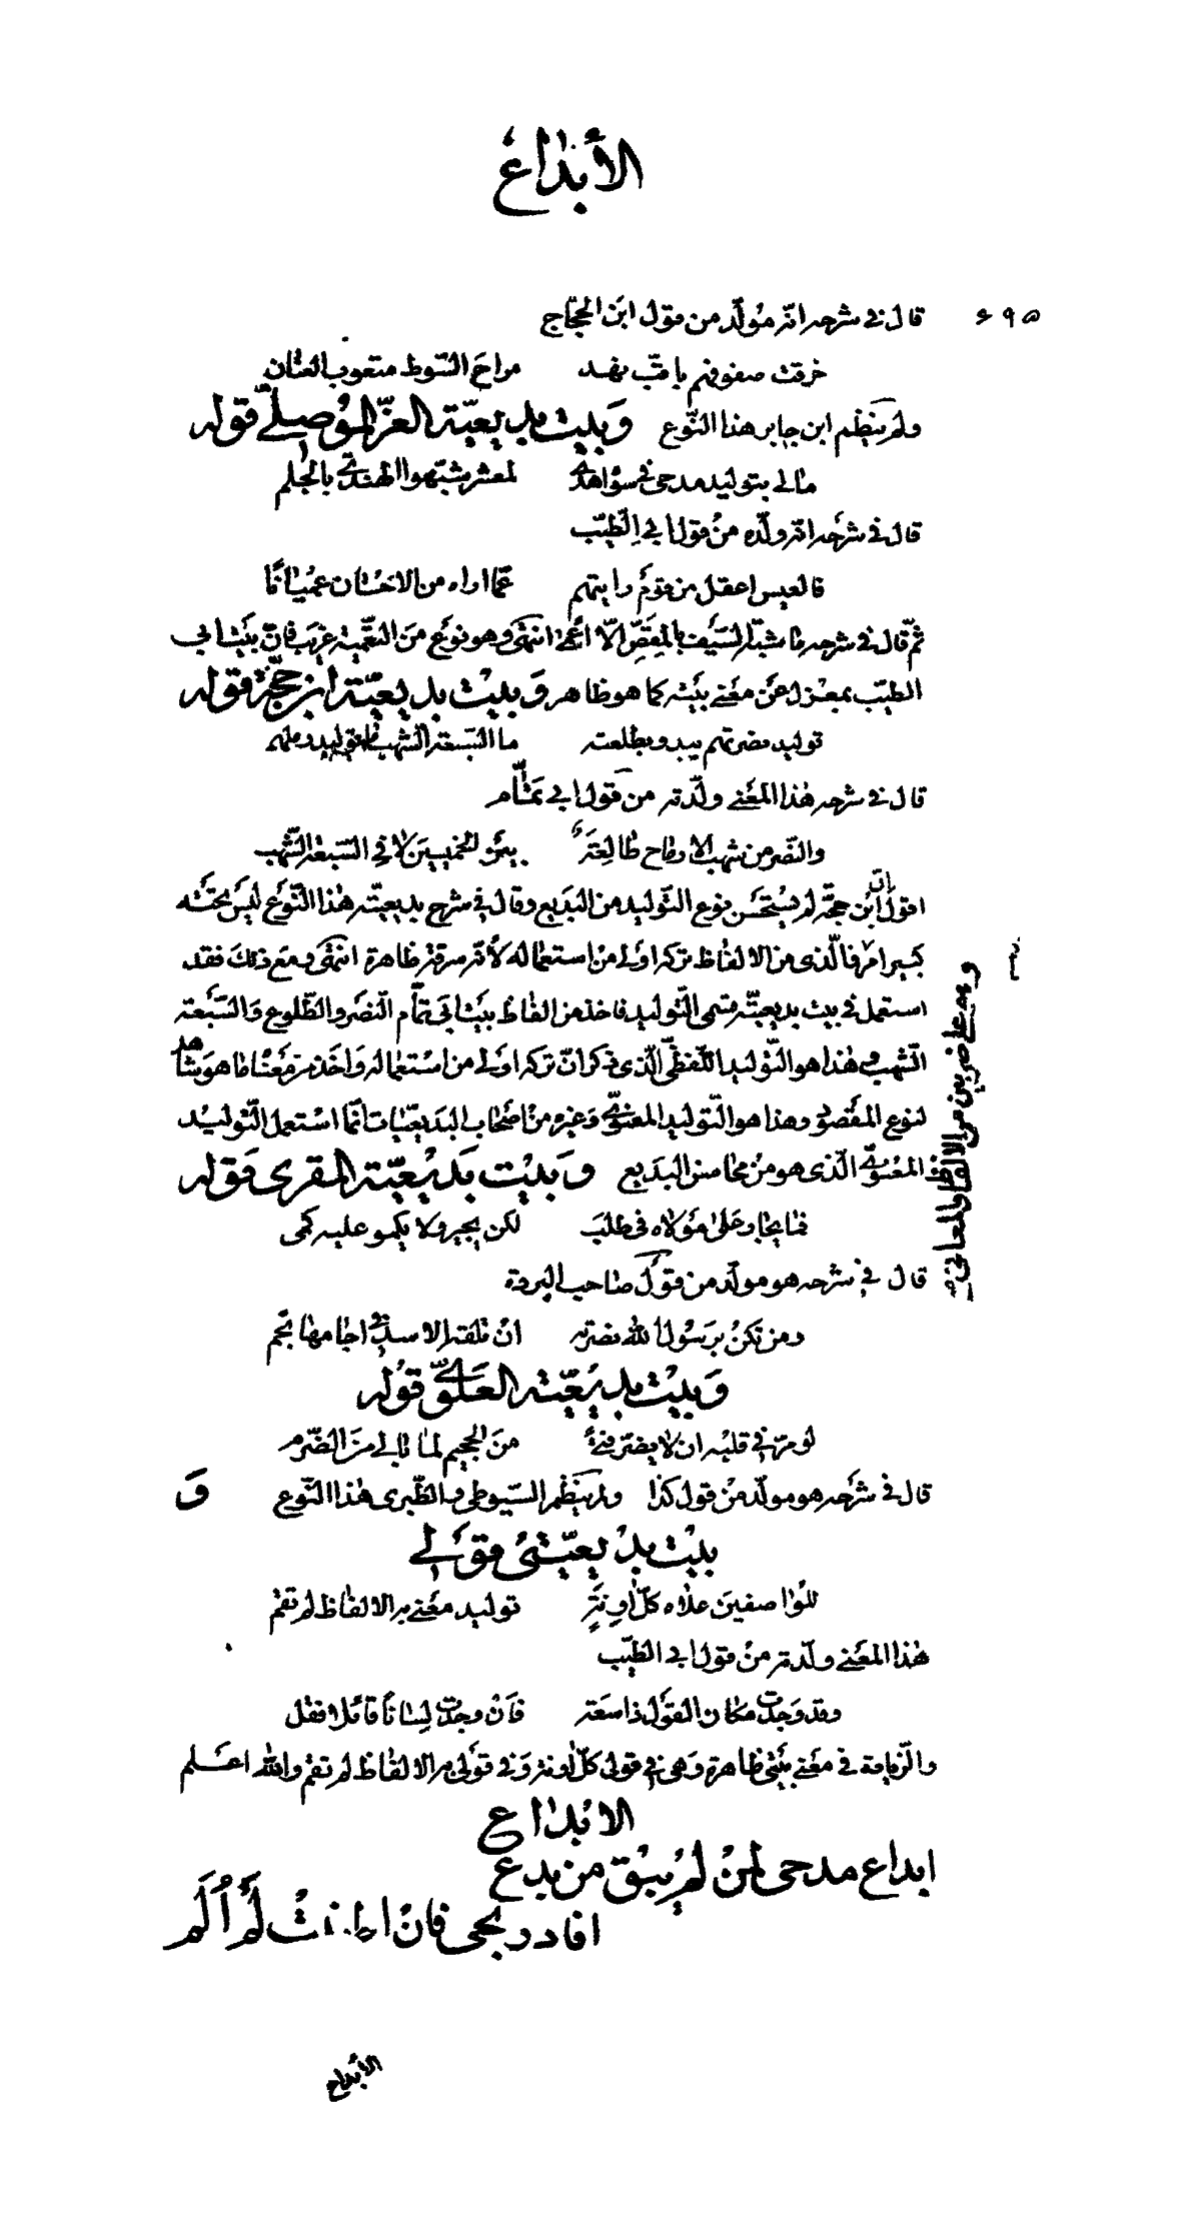 الأبداع
٦٩٥
قال في شرحه انّه مولّد من قول ابن الحجّاج
خرقت صفوفهم باقبّ نهد مراح السّوط متعوب العنان
ولم ينظم ابن جابر هذا النّوع وبيت بديعيّة العزّ الموصليّ قوله
مالي بتوليد مدحي في سواهدى لمعشر شبّهوا الهنديّ بالجلم
قال في شرحه انّه ولّده من قول ابي الطّيّب
فالعيس اعقل من قوم رايتهم عمّا اراه من الاحسان عميانا
ثمّ قال في شرحه ما شبّه السّيف بالمقصّ الّا اعمى انتهى وهو نوع من التّعمية غريب فانّ بيت ابي
الطيّب بمعزل عن معنى بيته كما هو ظاهر وبيت بديعيّة ابن حجّة قوله
توليد نصرتهم يبدو بطلعته ما السّبعة الشّهب ما توليد رملهم
قال في شرحه هذا المعنى ولّدته من قول ابي تمّام
والنّصر من شهب الارماح طالعة بين الخميسين لا في السّبعة الشّهب
اقول انّ ابن حجّة لم يستحسن نوع التّوليد من البديع وقال في شرح بديعيّته هذا النّوع ليس تحته
كبير امر فالّذي من الالفاظ تركه اولى من استعماله لأنّه سرقة ظاهرة انتهى ومع ذلك فقد
استعمل في بيت بديعيّته مسمى التّوليد فاخذ من الفاظ بيت ابي تمّام النّصر والطّلوع والسّبعة
الشّهب وهذا هو التّوليد اللّفظيّ الّذي ذكر انّ تركه اولى من استعماله واخذ من معناه ما هو شاهد
لنوع المقصود وهذا هو التّوليد المعنويّ وغيره من اصحاب البديعيّات انّما استعمل التّوليد
المعنويّ الّذي هو من محاسن البديع وبيت بديعيّة المقري قوله
فما يجاد على مولاه في طلب لكن يجير ولا يكمو عليه كمى
قال في شرحه هو مولّد من قول صاحب البردة
ومن تكن برسول الله نصرته ان تلقه الاسد في اجامها تجم
وبيت بديعيّة العلويّ قوله
لو مرّ في قلبه ان لا يضرّ فتى من الجحيم لما نالى من الضّرم
قال في شرحه هو مولّد من قول كذا ولم ينظم السّيوطي والطّبري هذا النّوع و
بيت بديعيّتي قولي
للواصفين علاه كلّ اونة توليد معنى به الالفاظ لم تقم
هذا المعنى ولّدته من قول ابي الطّيّب
وقد وجدت مكان القول ذا سعة فان وجدت لسانا قائلا فقل
والزّيادة في معنى بيتي ظاهرة وهي في قولي كلّ اونة وفي قولي به الالفاظ لم تقم والله اعلم
الابداع
ابداع مدحي لمن لم يبق من بدع
افاد ربحي فان اطنبت لم ألم
وهو على ضربين من الالفاظ والمعاني
الأبداع